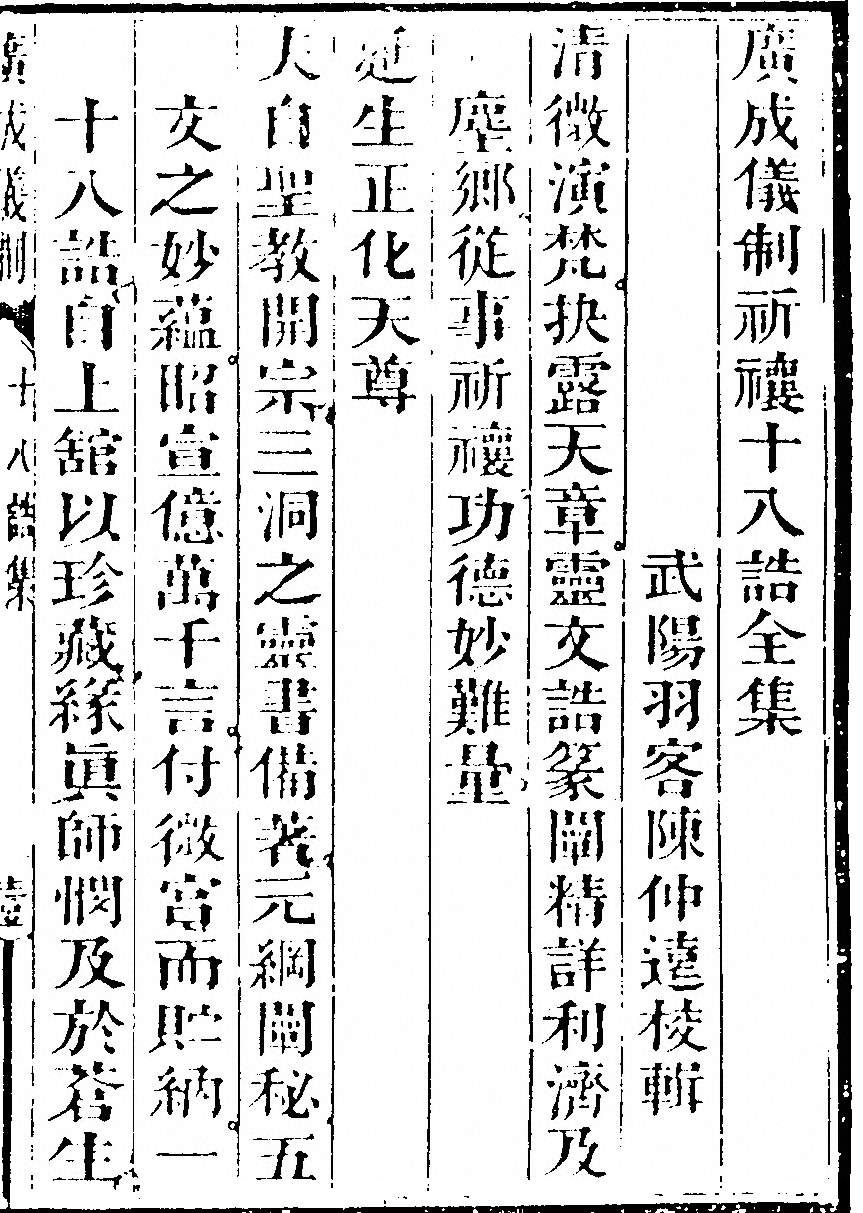 廣成儀制祈禳十八誥全集
武陽羽客陳仲遠校輯
清微演梵抉露天章靈文誥篆闡精詳利濟及
塵鄉從事祈禳功德妙難量
延生正化天尊
大自聖教開宗三洞之靈書備著元綱闡秘五
文之妙蘊昭宣億萬千言付微宮而貯納一
十八誥自上舘以珍藏緣眞師憫及於蒼生
廣成儀制 十八誥集 壹